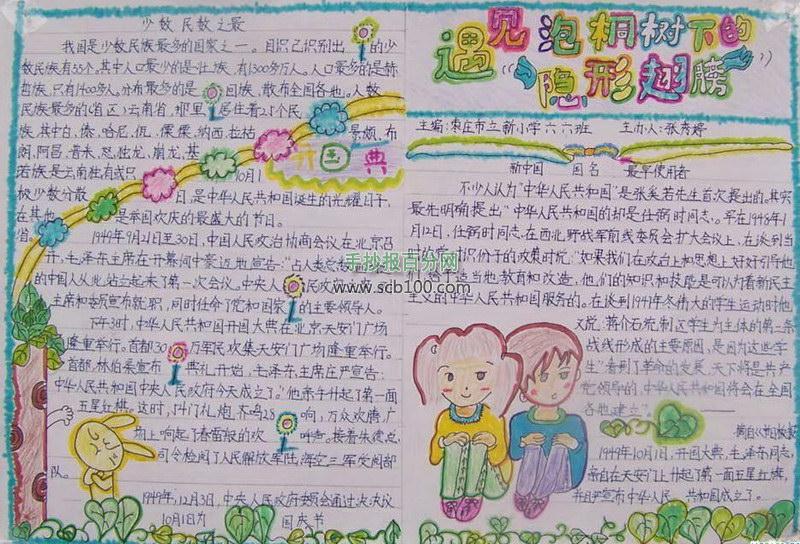 少数民数之最
我国是少数民族最多的国家之一。目识己识别出的少
数民族有55个。其中人口最少的是壮族,有1300多万人。人口最多的是赫
哲族,只有1400多人。分布最多的是回族,散布全国各地。人数
民族最多的(省区)云南省,那里居住着25个民
族,其中白、傣、哈尼、佤、傈僳、纳西、拉祜、景颇、布
朗、阿昌、普米、怒、独龙、崩龙、基
若族是云南独有或只
被少数分散
在其他
省。
开国典
10月1
日,是中华人民共和国诞生的光耀日子,
是举国欢庆的最盛大的节日。
1949年9月21日至30日,中国人民政治协商会议在北京召
开,毛泽东主席在开幕词中豪迈地宣告:"占人类总数
的中国人从此站立起来了第一次会议。中央人民政
主席和委员宣布就职,同时任命了党和国家的主要领导人。
下午3时,中华人民共和国开国大典在北京天安门广场
隆重举行。首都30万军民欢集天安门广场隆重举行。
首都,林伯渠宣布典礼开始,毛泽东主席庄严宣告:
中华人民共和国中央人民政府今天成立了。"他亲手升起了第一面
五星红旗。这时,54门礼炮齐鸣28响,万众欢腾,广
场上响起了春雷般的欢呼声。接着朱德总
司令检阅了人民解放军陆海空三军受阅部
队。
1949年,12月3日,中央人民政府委员会通过决决议
10月1为国庆节
遇见泡桐树下的
隐形翅膀
主编:枣庄市立新小学六六班 主办人:张秀婷
新中国国名最早使用者
不少人认为"中华人民共和国"是张奚若先生首次提出的。其实
最先明确提出"中华人民共和国的却是任弼时同志。早在1948年1
月12日,任弼时同志在西北野战军前线委员会扩大会议上,在谈到当
时知识份子的政策时说:"如果我们在政治上和思想上好好引导他
造当他、教育和改造,他们的知识和技能是可以为着新民
主主义的中华人民共和国服务的。在谈到1947年冬伟大的学生运动时他
又说,蒋介石统制区学生为主体的第二条
战线形成的主要原因,是因为这些学
生"看到了革命的发展,天下将是共产
党领导的,中华人民共和国将会在全国
各地建立"。
1949年10月1日,开国大典,毛泽东同志,
亲自在天安门上升起了第一面五星红旗,
并且严宣布中华人民共和国成立了。"
手抄报百分网
www.scb100.com